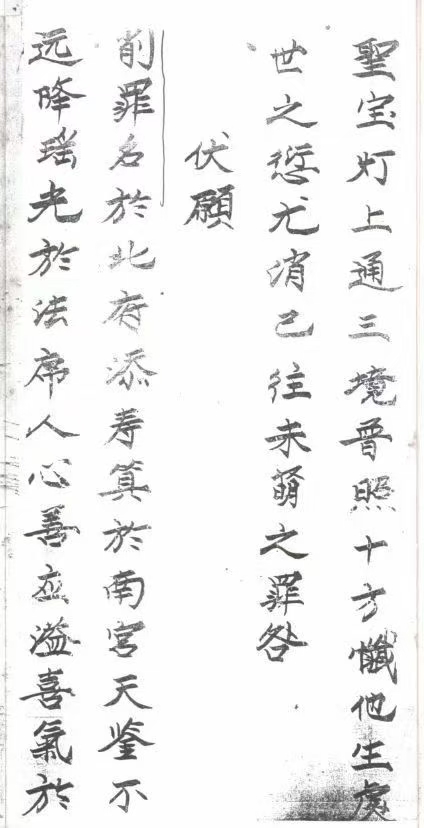 聖宝灯上通三境普照十方懺他生虔
世之愆尤消已往未萌之罪咎
伏願
削罪名於北府添寿算於南宮天鉴不
远降瑶光於法席人心善应溢喜氣於